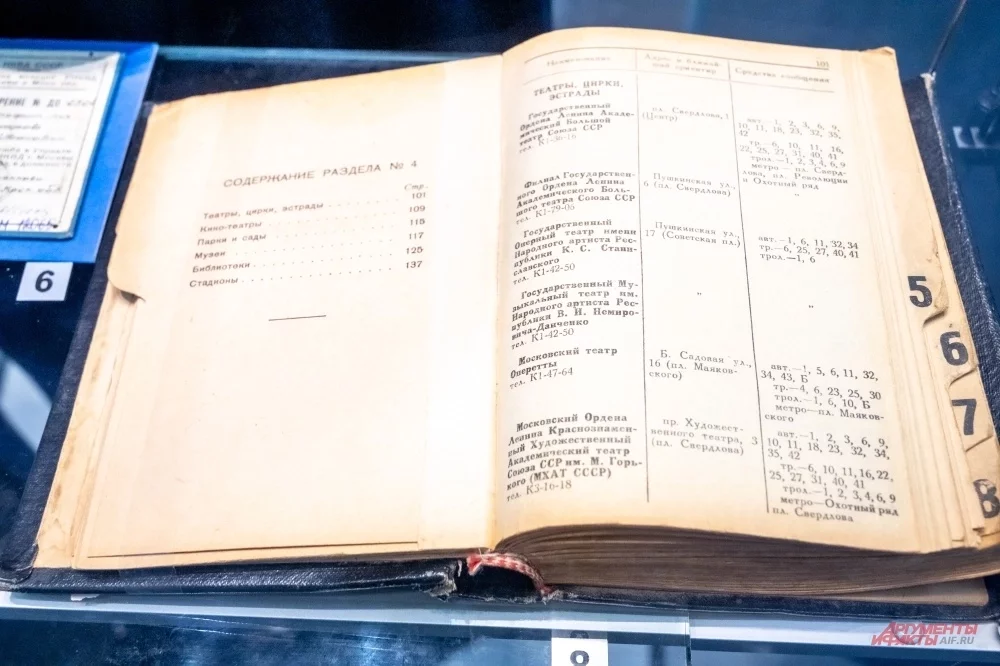 НКВД СССР
6
СОДЕРЖАНИЕ РАЗДЕЛА № 4
Стр.
Театры, цирки, эстрады . . . 101
Кино-театры . . . 109
Парки и сады . . . 115
Музеи . . . 117
Библиотеки . . . 125
Стадионы . . . 137
101
Наименование
Адрес и ближай-
ший ориентир
Средства сообщения
ТЕАТРЫ, ЦИРКИ,
ЭСТРАДЫ
Государственный
Ордена Ленина Акаде-
мический Большой
театр Союза ССР
тел. К1-36-16
пл. Свердлова, 1
(Центр)
авт.—1, 2, 3, 6, 9,
10, 11, 18, 23, 32, 35,
42
тр.—6, 10, 11, 16,
22, 25, 27, 31, 40, 41
трол.—1, 2, 3, 4, 6, 9
метро — пл. Сверд-
лова, пл. Революции
и Охотный ряд
Филиал Государствен-
ного Ордена Ленина
Академического Боль-
шого театра Союза ССР
тел. К1-79-05
Пушкинская ул.,
6 (пл. Свердлова)
Государственный
Оперный театр имени
Народного артиста Рес-
публики К. С. Стани-
славского
тел. К1-42-50
Пушкинская ул.,
17 (Советская пл.)
авт.—1, 6, 11, 32, 34
тр.—6, 25, 27, 40, 41
трол.—1, 6
Государственный Му-
зыкальный театр им.
Народного артиста Рес-
публики В. И. Немиро-
вича-Данченко
тел. К1-42-50
"
"
Московский театр
Оперетты
тел. К1-47-64
Б. Садовая ул.,
16 (пл. Маяков-
ского)
авт.—1, 5, 6, 11, 32,
34, 43, Б
тр.—4, 6, 23, 25, 30
трол.—1, 6, 10, Б
метро—пл. Маяков-
ского
Московский Ордена
Ленина Краснознамен-
ный Художественный
Академический театр
Союза ССР им. М. Горь-
кого (МХАТ СССР)
тел. К3-16-18
пр. Художест-
венного театра, 3
(пл. Свердлова)
авт.—1, 2, 3, 6, 9,
10, 11, 18, 23, 32, 34,
35, 42
тр.—6, 10, 11, 16, 22,
25, 27, 31, 40, 41
трол.—1, 2, 3, 4, 6, 9
метро—Охотный ряд
пл. Свердлова
5
6
7
8
АРГУМЕНТЫ
И ФАКТЫ AIF.RU